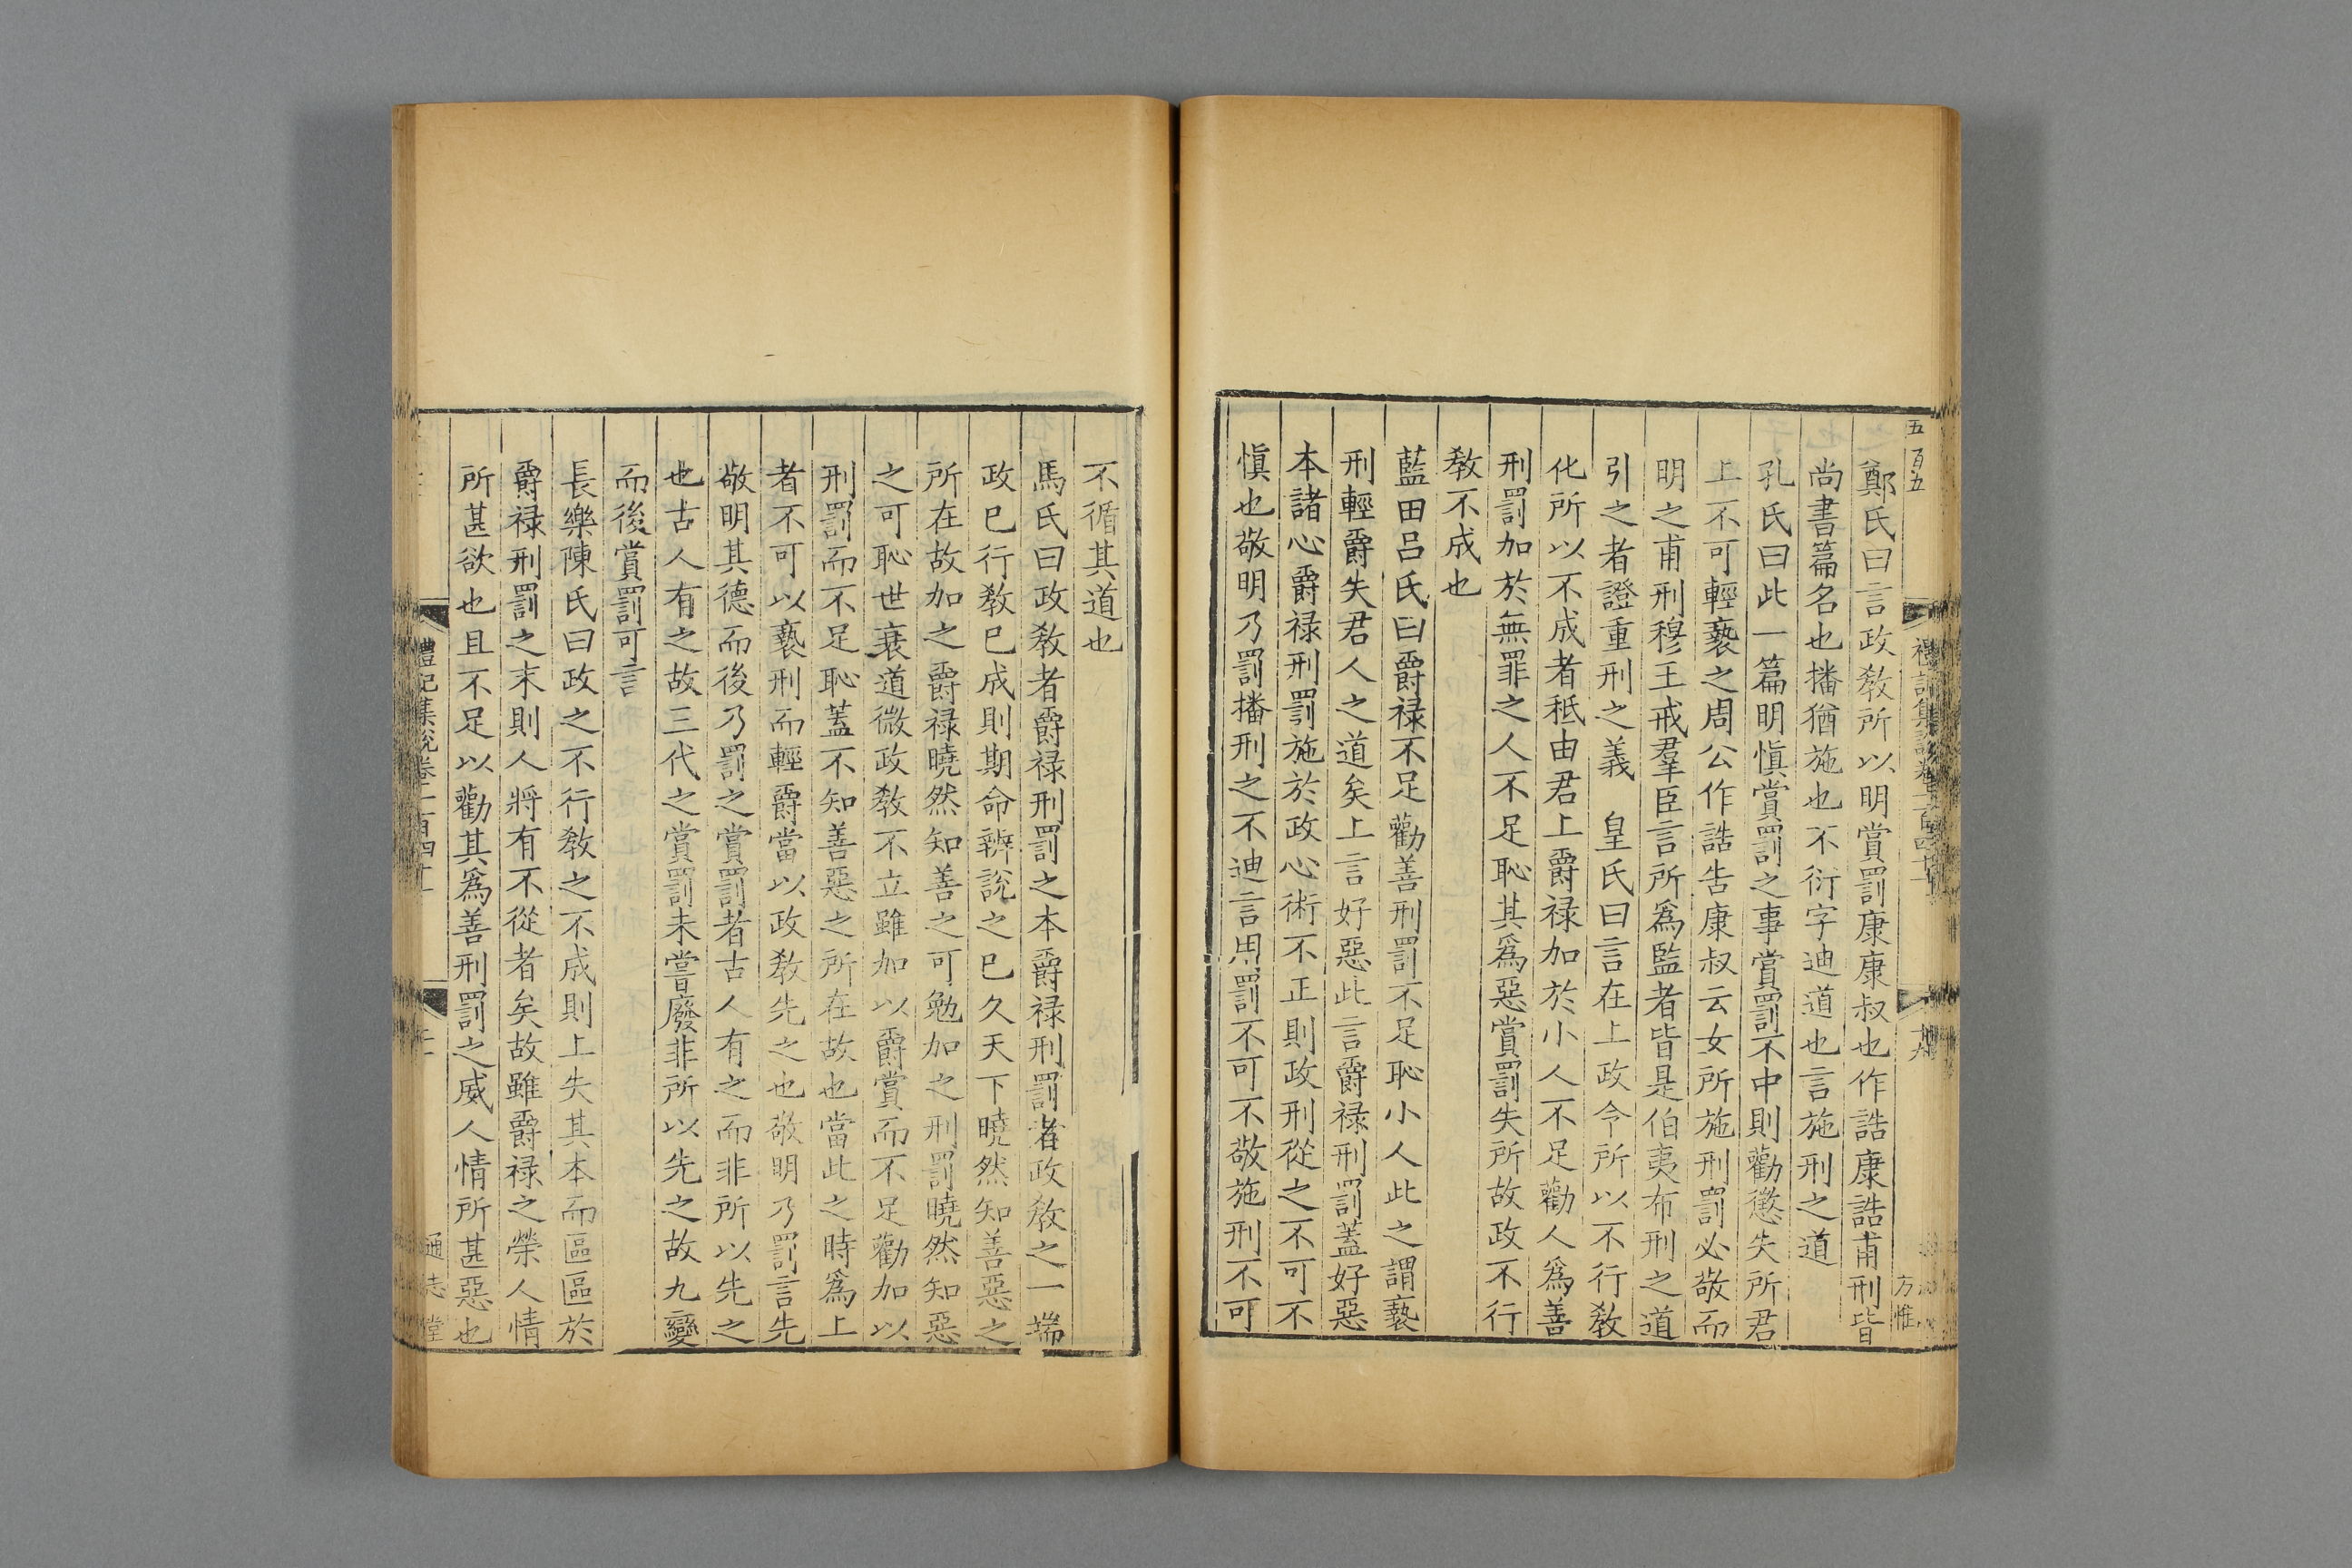 五百五
鄭氏曰言政敎所以明賞罰康康叔也作誥康誥甫刑皆
尚書篇名也播猶施也不衍字迪道也言施刑之道
孔氏曰此一篇明愼賞罰之事賞罰不中則勸懲失所君
上不可輕褻之周公作誥告康叔云女所施刑罰必敬而
明之甫刑穆王戒羣臣言所爲監者皆是伯夷布刑之道
引之者證重刑之義　皇氏曰言在上政令所以不行敎
化所以不成者秪由君上爵禄加於小人不足勸人爲善
刑罰加於無罪之人不足恥其爲惡賞罰失所故政不行
敎不成也
藍田呂氏曰爵禄不足勸善刑罰不足恥小人此之謂褻
刑輕爵失君人之道矣上言好惡此言爵禄刑罰蓋好惡
本諸心爵禄刑罰施於政心術不正則政刑從之不可不
愼也敬明乃罰播刑之不迪言用罰不可不敬施刑不可
方惟
不循其道也
馬氏曰政敎者爵禄刑罰之本爵禄刑罰者政敎之一端
政已行敎已成則期命辨說之已久天下曉然知善惡之
所在故加之爵禄曉然知善之可勉加之刑罰曉然知惡
之可恥世衰道微政敎不立雖加以爵賞而不足勸加以
刑罰而不足恥蓋不知善惡之所在故也當此之時爲上
者不可以褻刑而輕爵當以政敎先之也敬明乃罰言先
敬明其德而後乃罰之賞罰者古人有之而非所以先之
也古人有之故三代之賞罰未嘗廢非所以先之故九變
而後賞罰可言
長樂陳氏曰政之不行敎之不成則上失其本而區區於
爵禄刑罰之末則人將有不從者矣故雖爵禄之榮人情
所甚欲也且不足以勸其爲善刑罰之威人情所甚惡也
禮記集說卷一百四十一
通志堂